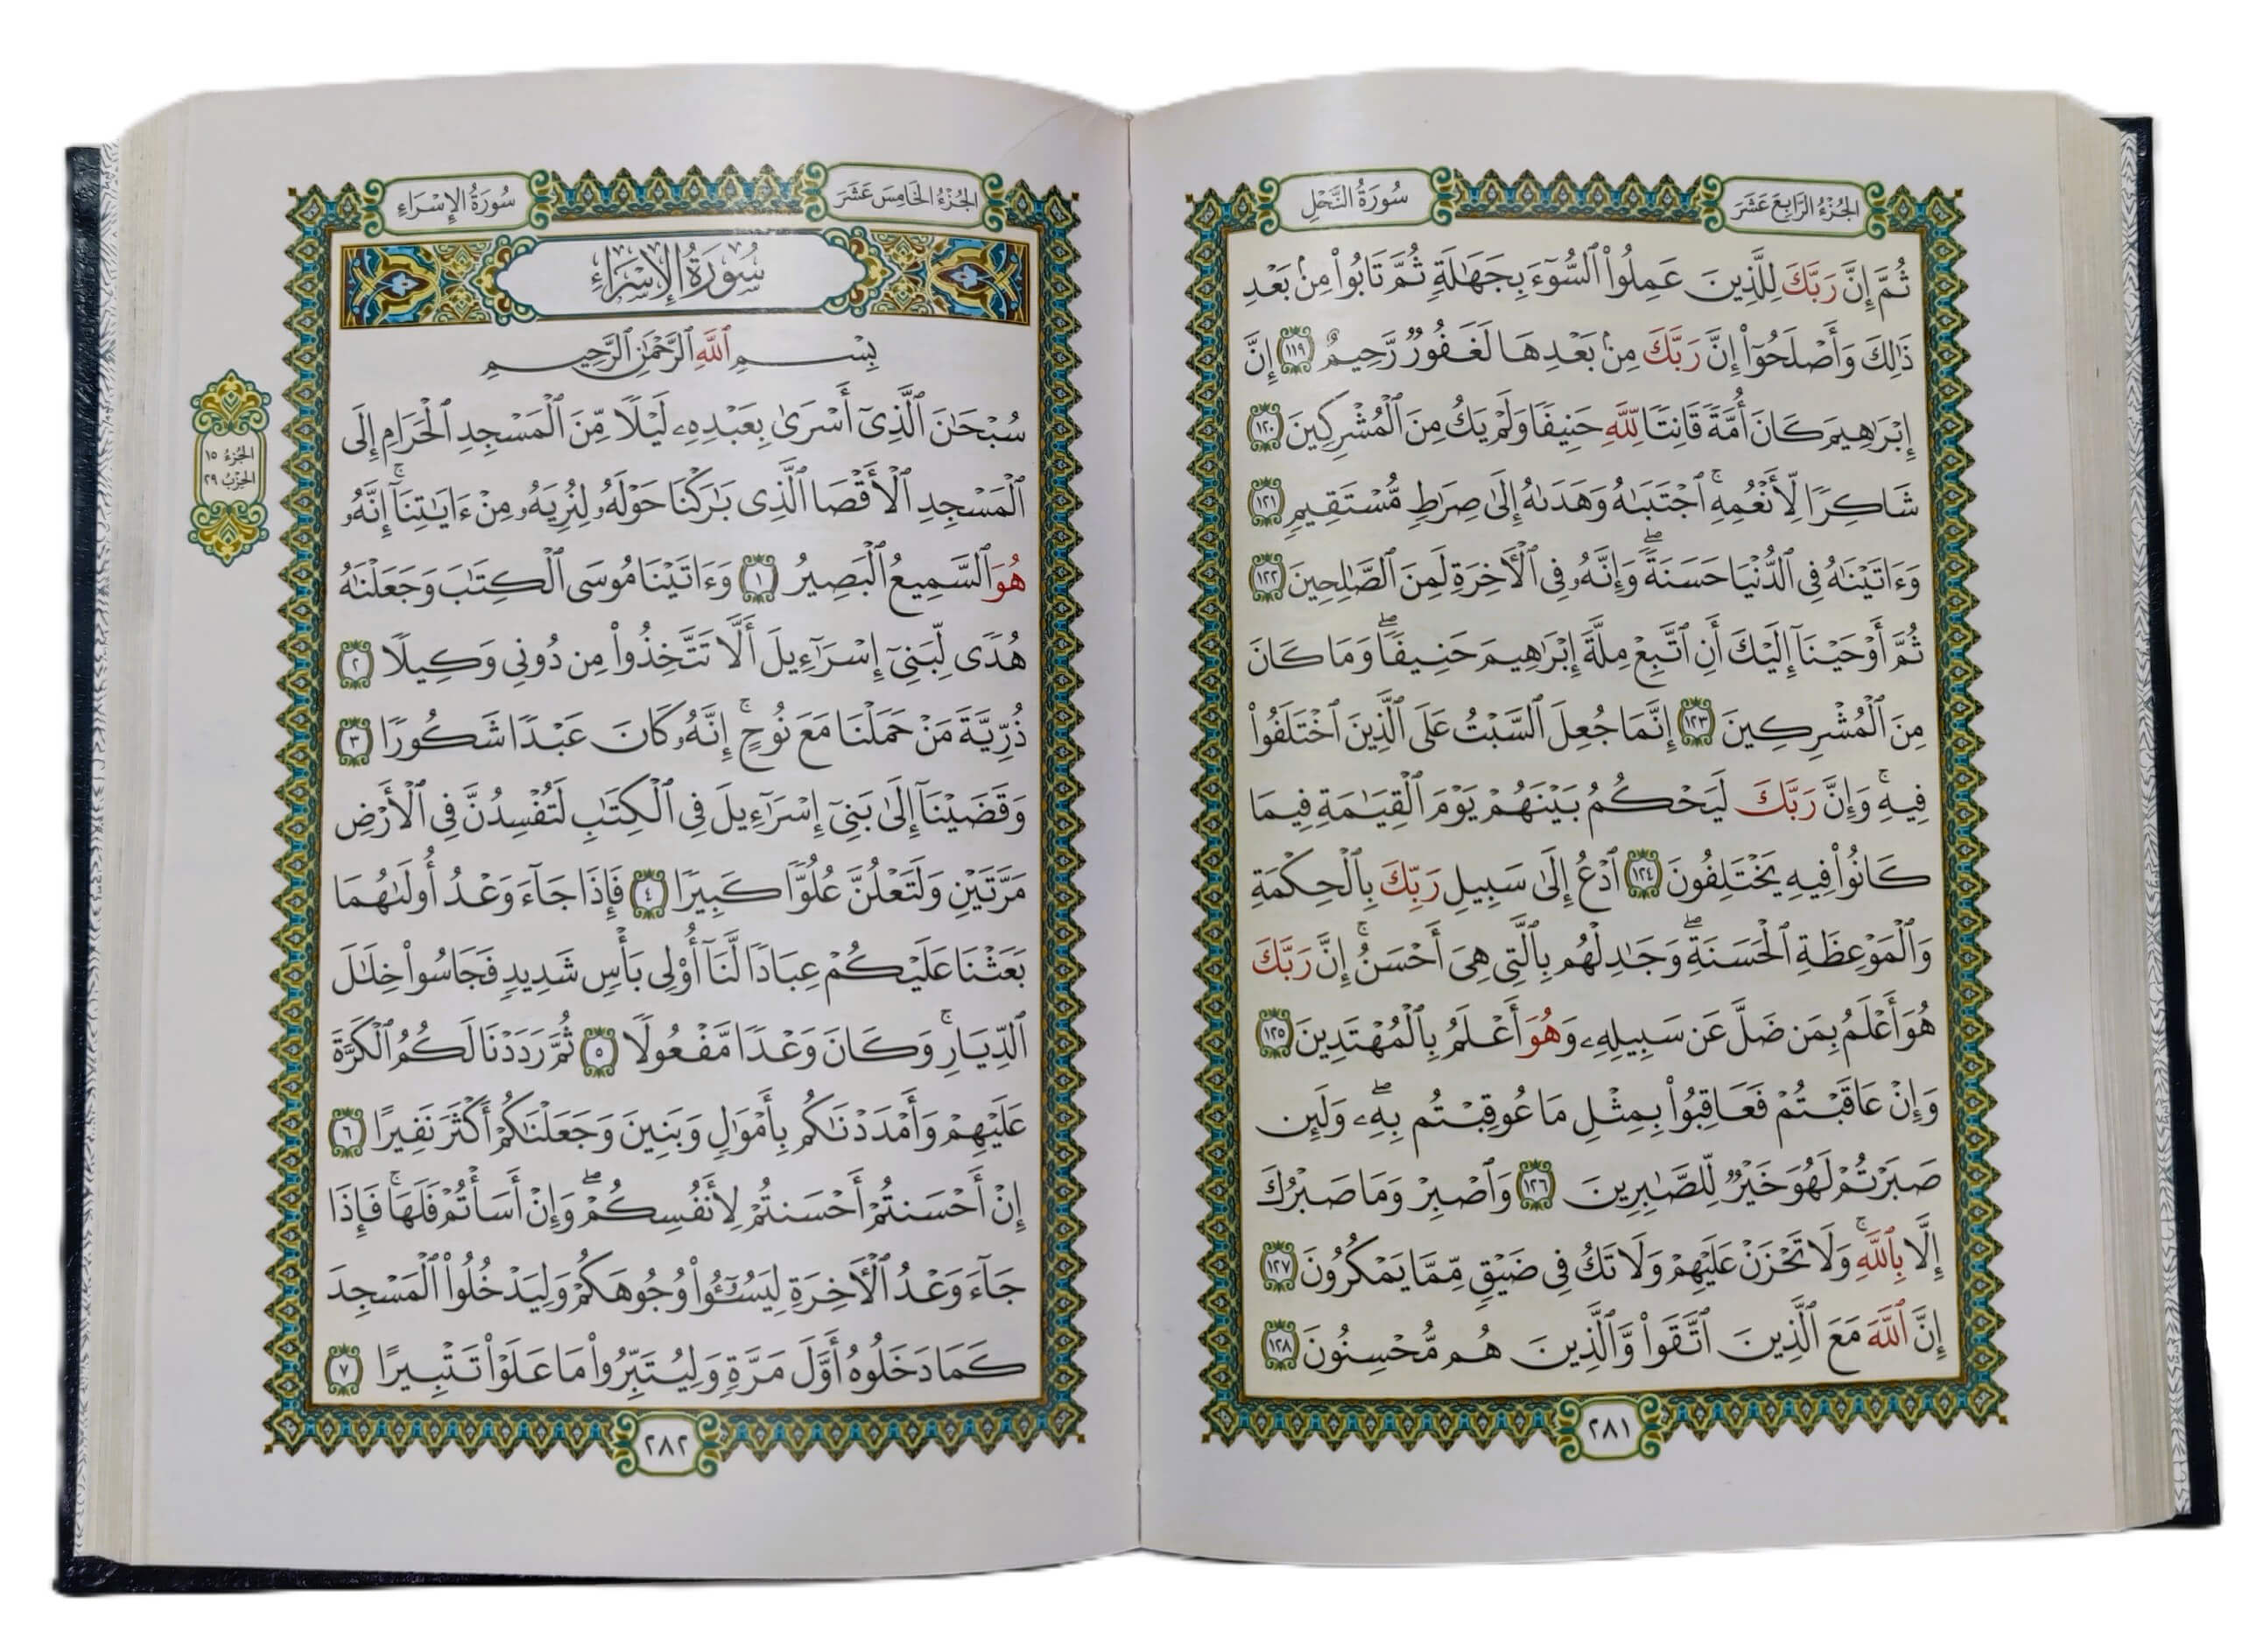 الجُزْءُ الرَّابِعَ عَشَرَ
سُورَةُ النَّحْلِ
ثُمَّ إِنَّ رَبَّكَ لِلَّذِينَ عَمِلُوا۟ ٱلسُّوٓءَ بِجَهَٰلَةٍ ثُمَّ تَابُوا۟ مِنۢ بَعْدِ
ذَٰلِكَ وَأَصْلَحُوٓا۟ إِنَّ رَبَّكَ مِنۢ بَعْدِهَا لَغَفُورٌ رَّحِيمٌ ١١٩ إِنَّ
إِبْرَٰهِيمَ كَانَ أُمَّةً قَانِتًا لِّلَّهِ حَنِيفًا وَلَمْ يَكُ مِنَ ٱلْمُشْرِكِينَ ١٢٠
شَاكِرًا لِّأَنْعُمِهِ ۚ ٱجْتَبَىٰهُ وَهَدَىٰهُ إِلَىٰ صِرَٰطٍ مُّسْتَقِيمٍ ١٢١
وَءَاتَيْنَٰهُ فِى ٱلدُّنْيَا حَسَنَةً ۖ وَإِنَّهُۥ فِى ٱلْءَاخِرَةِ لَمِنَ ٱلصَّٰلِحِينَ ١٢٢
ثُمَّ أَوْحَيْنَآ إِلَيْكَ أَنِ ٱتَّبِعْ مِلَّةَ إِبْرَٰهِيمَ حَنِيفًا ۖ وَمَا كَانَ
مِنَ ٱلْمُشْرِكِينَ ١٢٣ إِنَّمَا جُعِلَ ٱلسَّبْتُ عَلَى ٱلَّذِينَ ٱخْتَلَفُوا۟
فِيهِ ۚ وَإِنَّ رَبَّكَ لَيَحْكُمُ بَيْنَهُمْ يَوْمَ ٱلْقِيَٰمَةِ فِيمَا
كَانُوا۟ فِيهِ يَخْتَلِفُونَ ١٢٤ ٱدْعُ إِلَىٰ سَبِيلِ رَبِّكَ بِٱلْحِكْمَةِ
وَٱلْمَوْعِظَةِ ٱلْحَسَنَةِ ۖ وَجَٰدِلْهُم بِٱلَّتِى هِىَ أَحْسَنُ ۚ إِنَّ رَبَّكَ
هُوَ أَعْلَمُ بِمَن ضَلَّ عَن سَبِيلِهِۦ وَهُوَ أَعْلَمُ بِٱلْمُهْتَدِينَ ١٢٥
وَإِنْ عَاقَبْتُمْ فَعَاقِبُوا۟ بِمِثْلِ مَا عُوقِبْتُم بِهِۦ ۖ وَلَئِن
صَبَرْتُمْ لَهُوَ خَيْرٌ لِّلصَّٰبِرِينَ ١٢٦ وَٱصْبِرْ وَمَا صَبْرُكَ
إِلَّا بِٱللَّهِ ۚ وَلَا تَحْزَنْ عَلَيْهِمْ وَلَا تَكُ فِى ضَيْقٍ مِّمَّا يَمْكُرُونَ ١٢٧
إِنَّ ٱللَّهَ مَعَ ٱلَّذِينَ ٱتَّقَوا۟ وَّٱلَّذِينَ هُم مُّحْسِنُونَ ١٢٨
٢٨١
الجُزْءُ الخَامِسَ عَشَرَ
سُورَةُ الإِسْرَاءِ
سُورَةُ الإِسْرَاءِ
بِسْمِ ٱللَّهِ ٱلرَّحْمَٰنِ ٱلرَّحِيمِ
سُبْحَٰنَ ٱلَّذِىٓ أَسْرَىٰ بِعَبْدِهِۦ لَيْلًا مِّنَ ٱلْمَسْجِدِ ٱلْحَرَامِ إِلَى
ٱلْمَسْجِدِ ٱلْأَقْصَا ٱلَّذِى بَٰرَكْنَا حَوْلَهُۥ لِنُرِيَهُۥ مِنْ ءَايَٰتِنَآ ۚ إِنَّهُۥ
هُوَ ٱلسَّمِيعُ ٱلْبَصِيرُ ١ وَءَاتَيْنَا مُوسَى ٱلْكِتَٰبَ وَجَعَلْنَٰهُ
هُدًى لِّبَنِىٓ إِسْرَٰٓءِيلَ أَلَّا تَتَّخِذُوا۟ مِن دُونِى وَكِيلًا ٢
ذُرِّيَّةَ مَنْ حَمَلْنَا مَعَ نُوحٍ ۚ إِنَّهُۥ كَانَ عَبْدًا شَكُورًا ٣
وَقَضَيْنَآ إِلَىٰ بَنِىٓ إِسْرَٰٓءِيلَ فِى ٱلْكِتَٰبِ لَتُفْسِدُنَّ فِى ٱلْأَرْضِ
مَرَّتَيْنِ وَلَتَعْلُنَّ عُلُوًّا كَبِيرًا ٤ فَإِذَا جَآءَ وَعْدُ أُولَىٰهُمَا
بَعَثْنَا عَلَيْكُمْ عِبَادًا لَّنَآ أُو۟لِى بَأْسٍ شَدِيدٍ فَجَاسُوا۟ خِلَٰلَ
ٱلدِّيَارِ ۚ وَكَانَ وَعْدًا مَّفْعُولًا ٥ ثُمَّ رَدَدْنَا لَكُمُ ٱلْكَرَّةَ
عَلَيْهِمْ وَأَمْدَدْنَٰكُم بِأَمْوَٰلٍ وَبَنِينَ وَجَعَلْنَٰكُمْ أَكْثَرَ نَفِيرًا ٦
إِنْ أَحْسَنتُمْ أَحْسَنتُمْ لِأَنفُسِكُمْ ۖ وَإِنْ أَسَأْتُمْ فَلَهَا ۚ فَإِذَا
جَآءَ وَعْدُ ٱلْءَاخِرَةِ لِيَسُـۥٓـُٔوا۟ وُجُوهَكُمْ وَلِيَدْخُلُوا۟ ٱلْمَسْجِدَ
كَمَا دَخَلُوهُ أَوَّلَ مَرَّةٍ وَلِيُتَبِّرُوا۟ مَا عَلَوْا۟ تَتْبِيرًا ٧
٢٨٢
الجُزْءُ ١٥
الحِزْبُ ٢٩